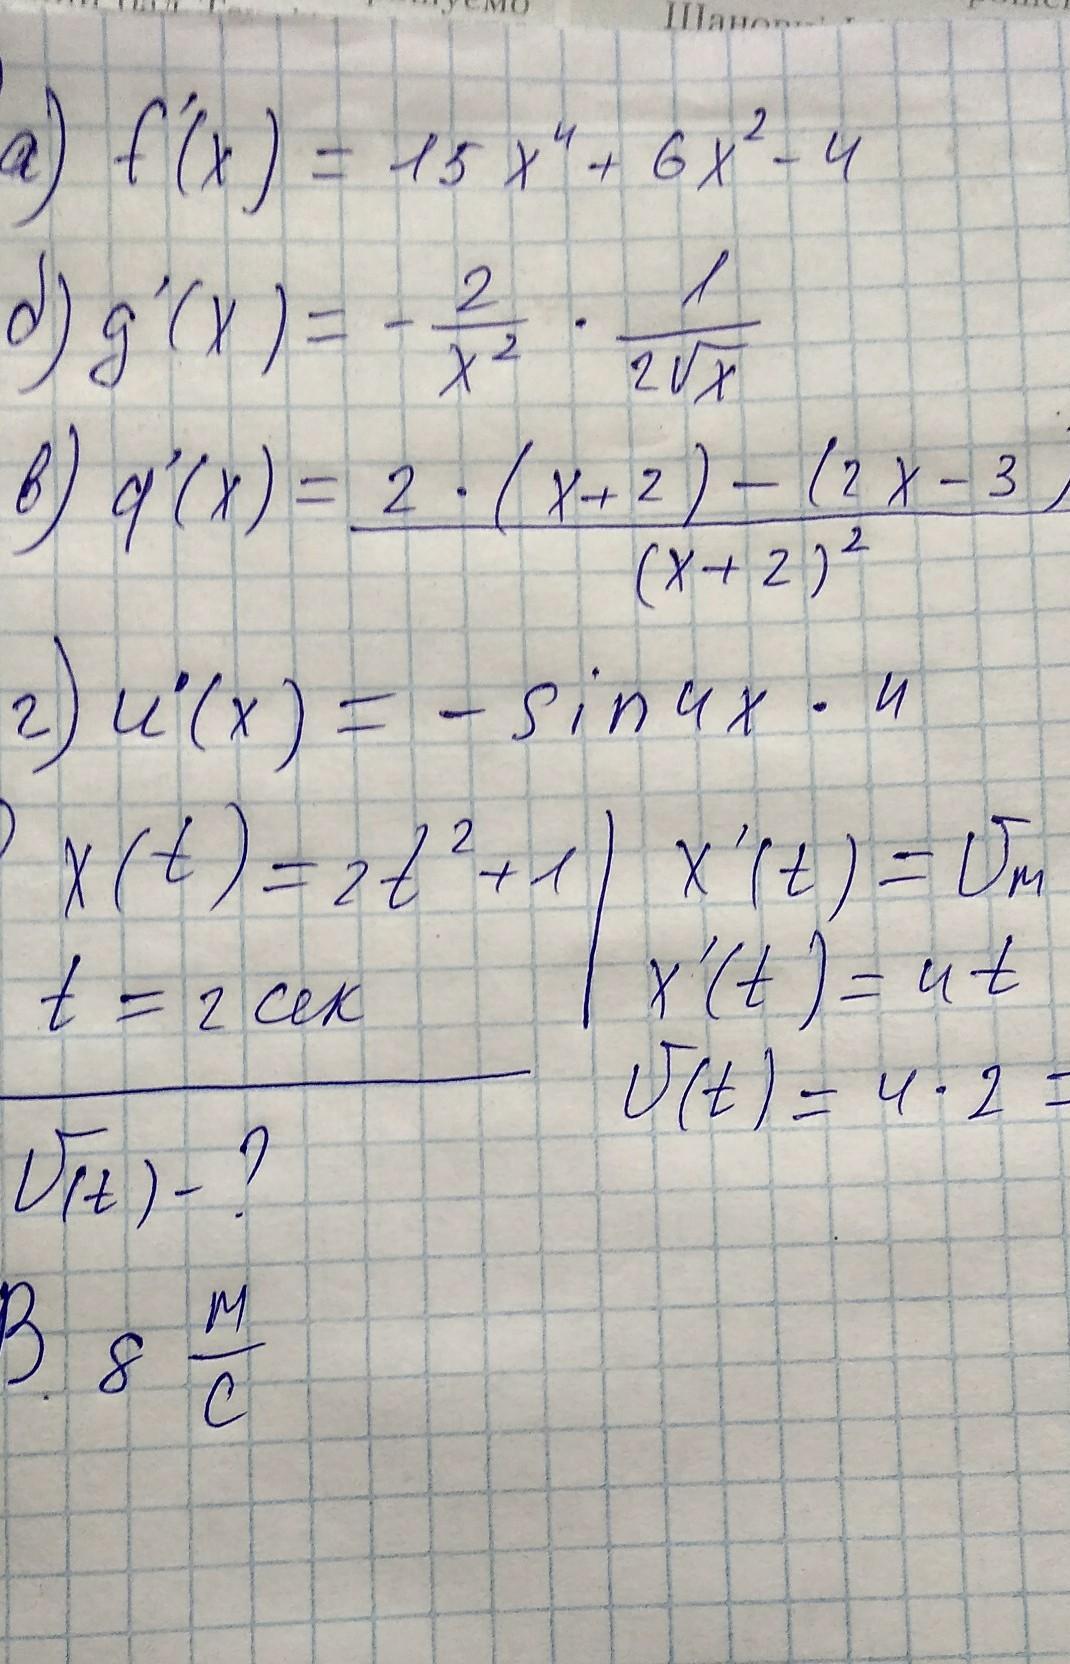 Шановні
а) f'(x) = 15x⁴ + 6x² - 4
б) g'(x) = - 2/x² · 1/(2√x)
в) q'(x) = (2 · (x+2) - (2x - 3)/(x+2)²
г) u'(x) = - sin4x · 4
x(t) = 2t² + 1 | x'(t) = Vm
t = 2 сек | x'(t) = 4t
V(t) = 4 · 2 =
V(t) - ?
В. 8 м/с